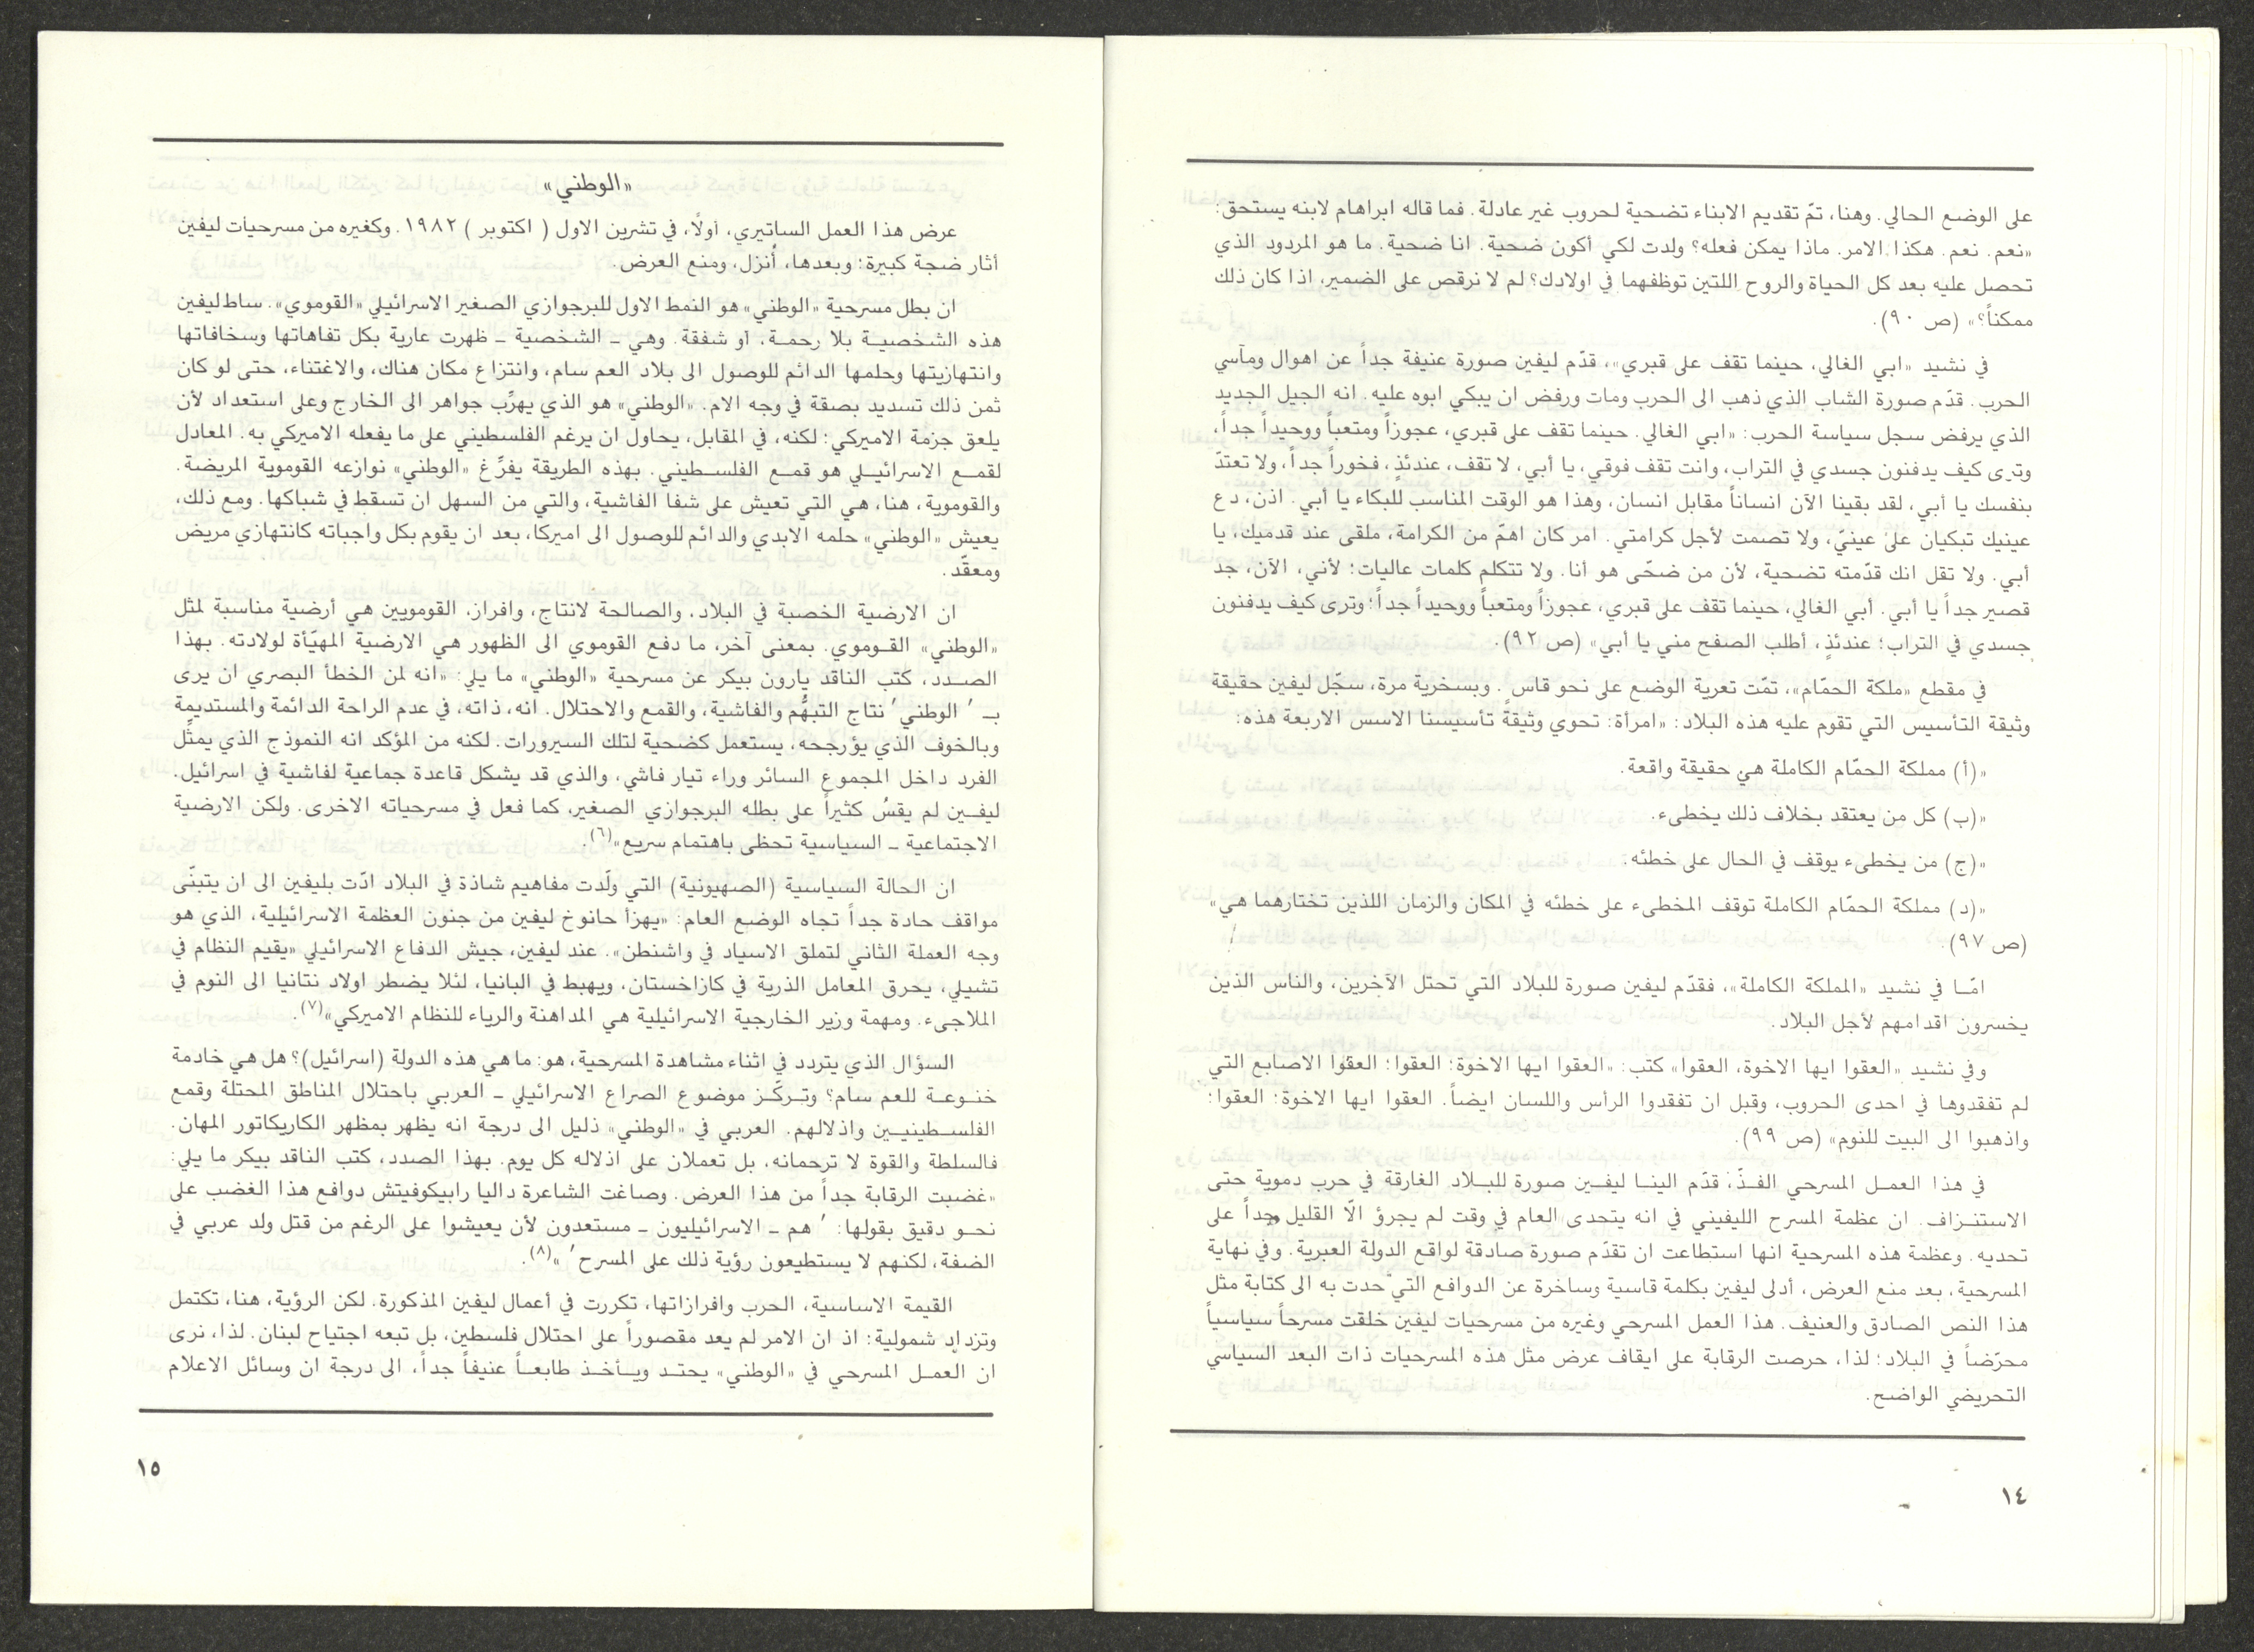 على الوضع الحالي. وهنا، تمّ تقديم الابناء تضحية لحروب غير عادلة. فما قاله ابراهام لابنه يستحق:
«نعم. نعم. هكذا الامر. ماذا يمكن فعله؟ ولدت لكي أكون ضحية. انا ضحية. ما هو المردود الذي
تحصل عليه بعد كل الحياة والروح اللتين توظفهما في اولادك؟ لم لا نرقص على الضمير، اذا كان ذلك
ممكناً؟» (ص ٩٠).
في نشيد «ابي الغالي، حينما تقف على قبري»، قدّم ليفين صورة عنيفة جداً عن اهوال ومآسي
الحرب. قدّم صورة الشاب الذي ذهب الى الحرب ومات ورفض ان يبكي ابوه عليه. انه الجيل الجديد
الذي يرفض سجل سياسة الحرب: «ابي الغالي. حينما تقف على قبري، عجوزاً ومتعباً ووحيداً جداً،
وترى كيف يدفنون جسدي في التراب، وانت تقف فوقي، يا أبي، لا تقف، عندئذٍ، فخوراً جداً، ولا تعتدّ
بنفسك يا أبي، لقد بقينا الآن انساناً مقابل انسان، وهذا هو الوقت المناسب للبكاء يا أبي. اذن، دع
عينيك تبكيان على عينيّ، ولا تصمت لأجل كرامتي. امر كان اهمّ من الكرامة، ملقى عند قدميك، يا
أبي. ولا تقل انك قدّمته تضحية، لأن من ضحّى هو أنا. ولا تتكلم كلمات عاليات؛ لأني، الآن، جد
قصير جداً يا أبي. أبي الغالي، حينما تقف على قبري، عجوزاً ومتعباً ووحيداً جداً؛ وترى كيف يدفنون
جسدي في التراب؛ عندئذٍ، أطلب الصفح مني يا أبي» (ص ٩٢).
في مقطع «ملكة الحمّام»، تمّت تعرية الوضع على نحو قاس. وبسخرية مرة، سجّل ليفين حقيقة
وثيقة التأسيس التي تقوم عليه هذه البلاد: «امرأة: تحوي وثيقةُ تأسيسنا الاسس الاربعة هذه:
«(أ) مملكة الحمّام الكاملة هي حقيقة واقعة.
«(ب) كل من يعتقد بخلاف ذلك يخطىء.
«(ج) من يخطىء يوقف في الحال على خطئه.
«(د) مملكة الحمّام الكاملة توقف المخطىء على خطئه في المكان والزمان اللذين تختارهما هي»
(ص ٩٧).
امّا في نشيد «المملكة الكاملة»، فقدّم ليفين صورة للبلاد التي تحتل الآخرين، والناس الذين
يخسرون اقدامهم لأجل البلاد.
وفي نشيد «العقوا ايها الاخوة، العقوا» كتب: «العقوا ايها الاخوة؛ العقوا؛ العقوا الاصابع التي
لم تفقدوها في احدى الحروب، وقبل ان تفقدوا الرأس واللسان ايضاً. العقوا ايها الاخوة؛ العقوا؛
واذهبوا الى البيت للنوم» (ص ٩٩).
في هذا العمل المسرحي الفذّ، قدّم الينا ليفين صورة للبلاد الغارقة في حرب دموية حتى
الاستنزاف. ان عظمة المسرح الليفيني في انه يتحدى العام في وقت لم يجرؤ الّا القليل جداً على
تحديه. وعظمة هذه المسرحية انها استطاعت ان تقدّم صورة صادقة لواقع الدولة العبرية. وفي نهاية
المسرحية، بعد منع العرض، أدلى ليفين بكلمة قاسية وساخرة عن الدوافع التي حدت به الى كتابة مثل
هذا النص الصادق والعنيف. هذا العمل المسرحي وغيره من مسرحيات ليفين خلقت مسرحاً سياسياً
محرّضاً في البلاد؛ لذا، حرصت الرقابة على ايقاف عرض مثل هذه المسرحيات ذات البعد السياسي
التحريضي الواضح.
١٤
«الوطني»
عرض هذا العمل الساتيري، أولًا، في تشرين الاول ( اكتوبر ) ١٩٨٢. وكغيره من مسرحيات ليفين
أثار ضجة كبيرة؛ وبعدها، أُنزل، ومنع العرض.
ان بطل مسرحية «الوطني» هو النمط الاول للبرجوازي الصغير الاسرائيلي «القوموي». ساط ليفين
هذه الشخصية بلا رحمة، أو شفقة. وهي ـ الشخصية ـ ظهرت عارية بكل تفاهاتها وسخافاتها
وانتهازيتها وحلمها الدائم للوصول الى بلاد العم سام، وانتزاع مكان هناك، والاغتناء، حتى لو كان
ثمن ذلك تسديد بصقة في وجه الام. «الوطني» هو الذي يهرِّب جواهر الى الخارج وعلى استعداد لأن
يلعق جزمة الاميركي؛ لكنه، في المقابل، يحاول ان يرغم الفلسطيني على ما يفعله الاميركي به. المعادل
لقمع الاسرائيلي هو قمع الفلسطيني. بهذه الطريقة يفرِّغ «الوطني» نوازعه القوموية المريضة.
والقوموية، هنا، هي التي تعيش على شفا الفاشية، والتي من السهل ان تسقط في شباكها. ومع ذلك،
يعيش «الوطني» حلمه الابدي والدائم للوصول الى اميركا، بعد ان يقوم بكل واجباته كانتهازي مريض
ومعقّد.
ان الارضية الخصبة في البلاد، والصالحة لانتاج، وافراز، القومويين هي أرضية مناسبة لمثل
«الوطني» القوموي. بمعنى آخر، ما دفع القوموي الى الظهور هي الارضية المهيّأة لولادته. بهذا
الصدد، كتب الناقد يارون بيكر عن مسرحية «الوطني» ما يلي: «انه لمن الخطأ البصري ان يرى
بـ ' الوطني' نتاج التبهُّم والفاشية، والقمع والاحتلال. انه، ذاته، في عدم الراحة الدائمة والمستديمة
وبالخوف الذي يؤرجحه، يستعمل كضحية لتلك السيرورات. لكنه من المؤكد انه النموذج الذي يمثّل
الفرد داخل المجموع السائر وراء تيار فاشي، والذي قد يشكل قاعدة جماعية لفاشية في اسرائيل.
ليفين لم يقسُ كثيراً على بطله البرجوازي الصغير، كما فعل في مسرحياته الاخرى. ولكن الارضية
الاجتماعية ـ السياسية تحظى باهتمام سريع»(٦).
ان الحالة السياسية (الصهيونية) التي ولّدت مفاهيم شاذة في البلاد ادّت بليفين الى ان يتبنّى
مواقف حادة جداً تجاه الوضع العام: «يهزأ حانوخ ليفين من جنون العظمة الاسرائيلية، الذي هو
وجه العملة الثاني لتملق الاسياد في واشنطن». عند ليفين، جيش الدفاع الاسرائيلي «يقيم النظام في
تشيلي، يحرق المعامل الذرية في كازاخستان، ويهبط في البانيا، لئلا يضطر اولاد نتانيا الى النوم في
الملاجىء. ومهمة وزير الخارجية الاسرائيلية هي المداهنة والرياء للنظام الاميركي»(٧).
السؤال الذي يتردد في اثناء مشاهدة المسرحية، هو: ما هي هذه الدولة (اسرائيل)؟ هل هي خادمة
خنوعة للعم سام؟ وتركّز موضوع الصراع الاسرائيلي ـ العربي باحتلال المناطق المحتلة وقمع
الفلسطينيين واذلالهم. العربي في «الوطني» ذليل الى درجة انه يظهر بمظهر الكاريكاتور المهان.
فالسلطة والقوة لا ترحمانه، بل تعملان على اذلاله كل يوم. بهذا الصدد، كتب الناقد بيكر ما يلي:
«غضبت الرقابة جداً من هذا العرض. وصاغت الشاعرة داليا رابيكوفيتش دوافع هذا الغضب على
نحو دقيق بقولها: ' هم ـ الاسرائيليون ـ مستعدون لأن يعيشوا على الرغم من قتل ولد عربي في
الضفة، لكنهم لا يستطيعون رؤية ذلك على المسرح ' »(٨).
القيمة الاساسية، الحرب وافرازاتها، تكررت في أعمال ليفين المذكورة. لكن الرؤية، هنا، تكتمل
وتزداد شمولية؛ اذ ان الامر لم يعد مقصوراً على احتلال فلسطين، بل تبعه اجتياح لبنان. لذا، نرى
ان العمل المسرحي في «الوطني» يحتد ويأخذ طابعاً عنيفاً جداً، الى درجة ان وسائل الاعلام
١٥